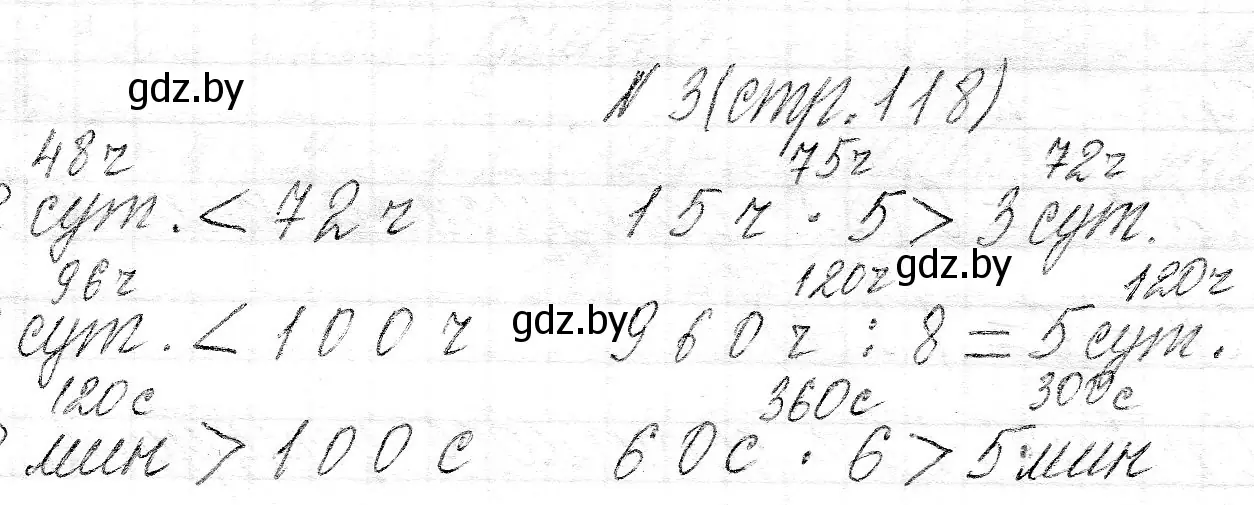 gdz.by
№ 3 (стр. 118)
48ч 75ч 72ч
сут. < 72 ч 15 ч · 5 > 3 сут.
gdz.by
96ч 120ч 120ч
gdz.by
сут. < 100 ч 960 ч : 8 = 5 сут.
120с 360с 300с
мин > 100 с 60 с · 6 > 5 мин